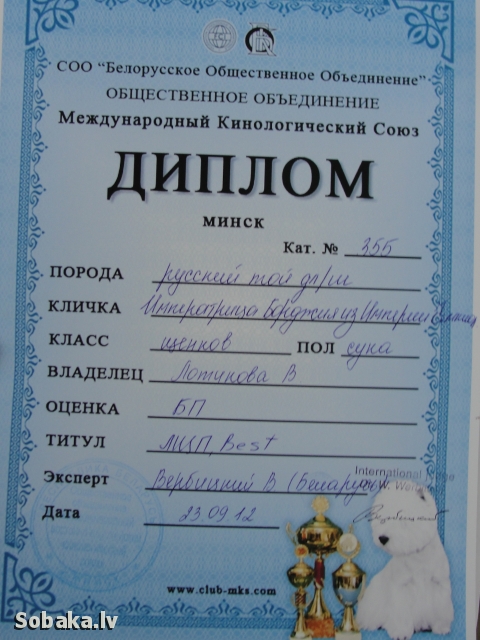 СОО "Белорусское Общественное Объединение"
ОБЩЕСТВЕННОЕ ОБЪЕДИНЕНИЕ
Международный Кинологический Союз
ДИПЛОМ
МИНСК
Кат. № 355
ПОРОДА русский той дл/ш
КЛИЧКА Императрица Борджия из Империи
КЛАСС щенков ПОЛ сука
ВЛАДЕЛЕЦ Лотунова В
ОЦЕНКА БП
ТИТУЛ ЛЩП, Best
Эксперт Вербицкий В (Беларусь)
International
Дата 23.09.12
www.club-mks.com
Sobaka.lv